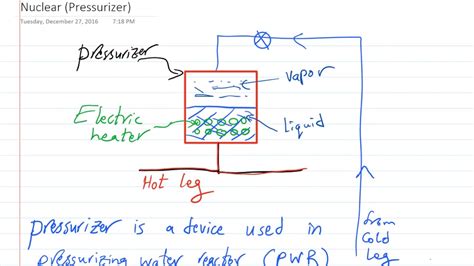 Nuclear (Pressurizer)
Tuesday, December 27, 2016 7:18 PM
Pressurizer
vapor
Electric
heater
Liquid
Hot leg
from
cold
leg
Pressurizer is a device used in
pressurizing water reactor (PWR)